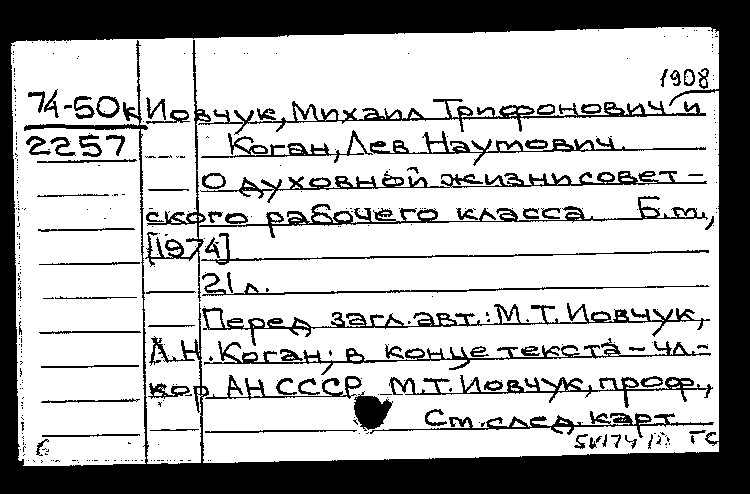 1908
74-50к Иовчук, Михаил Трифонович и
2257 Коган, Лев Наумович.
О духовной жизни совет-
ского рабочего класса. Б.м.,
[1974].
21 л.
Перед загл. авт.: М.Т. Иовчук,
Л.Н. Коган; в конце текста - чл.-
кор. АН СССР М.Т. Иовчук, проф.,
См. след. карт
6 ГС